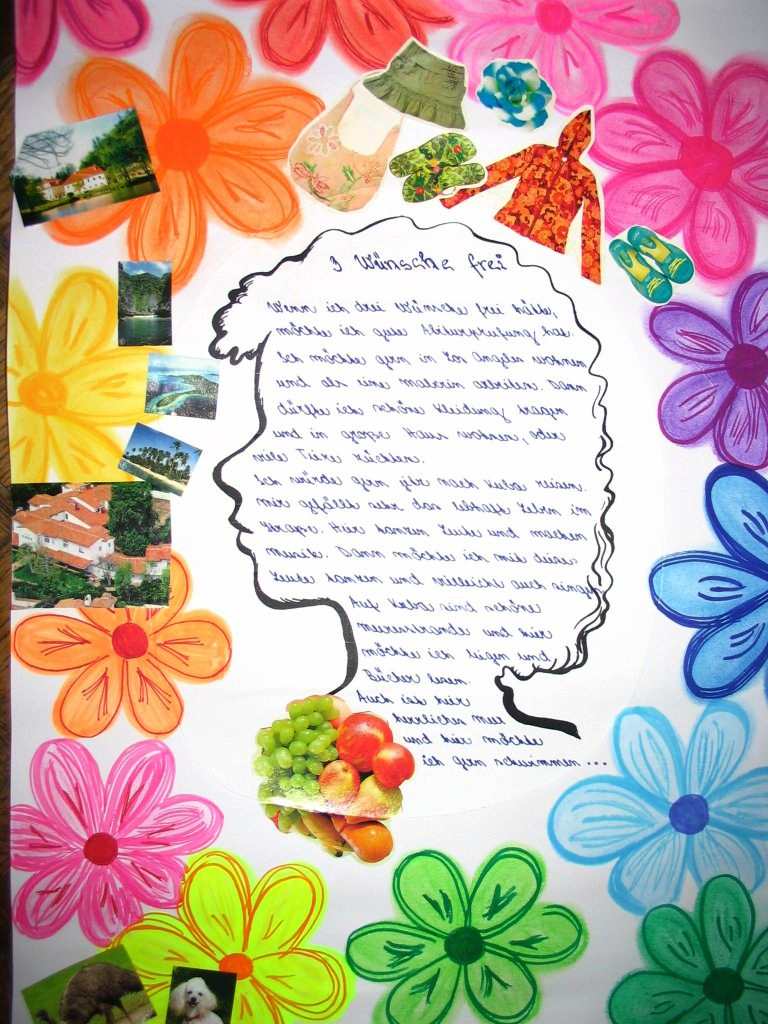 3 Wünsche frei
Wenn ich drei Wünsche frei hätte,
möchte ich gute Abiturprüfung hab.
Ich möchte gern in Los Angeles wohnen
und als eine malerin arbeiten. Dann
dürfte ich schöne Kleidung tragen
und in grope Haus wohnen, oder
viele Tiere züchten.
Ich würde gern jzr nach Kuba reisen.
Mir gefällt sehr das lebhafte Lebrn im
Strape. Hier tanzen Leute und machen
musik. Dann möchte ich mit diese
Leute tanzen und vielleicht auch singe
Auf Kuba sind schöne
meerenstrande und hier
möchte ich liegen und
Bücher lesen.
Auch ist hier
herrliches meer
und hier möchte
ich gern schwimmen ...